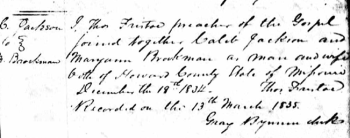 C. Jackson
to
Brockman
I Thos Fristoe preacher of the Gospel
joined together Caleb Jackson and
Maryann Brockman as man and wife
both of Howard County State of Missouri
December the 18th 1834. Thos Fristoe
Recorded on the 13th March 1835.
Gray Bynum clerk